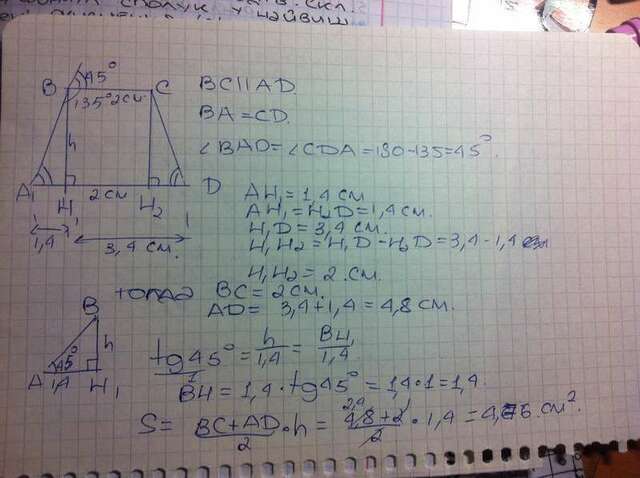 сполук
найвиш
45°
B C
135° 2см
h
A H₁ 2 см H₂ D
1,4 3,4 см.
BC || AD
BA = CD.
∠BAD = ∠CDA = 180 - 135 = 45°.
AH₁ = 1,4 см
AH₁ = H₂D = 1,4 см.
H₁D = 3,4 см.
H₁H₂ = H₁D - H₂D = 3,4 - 1,4
H₁H₂ = 2 см.
тогда BC = 2 см.
AD = 3,4 + 1,4 = 4,8 см.
B
h
45°
A 1,4 H₁
tg 45° = h/1,4 = BH₁/1,4
1
BH = 1,4 · tg 45° = 1,4 · 1 = 1,4.
S = (BC + AD)/2 · h = (4,8 + 2)/2 · 1,4 = см².
2,4 1